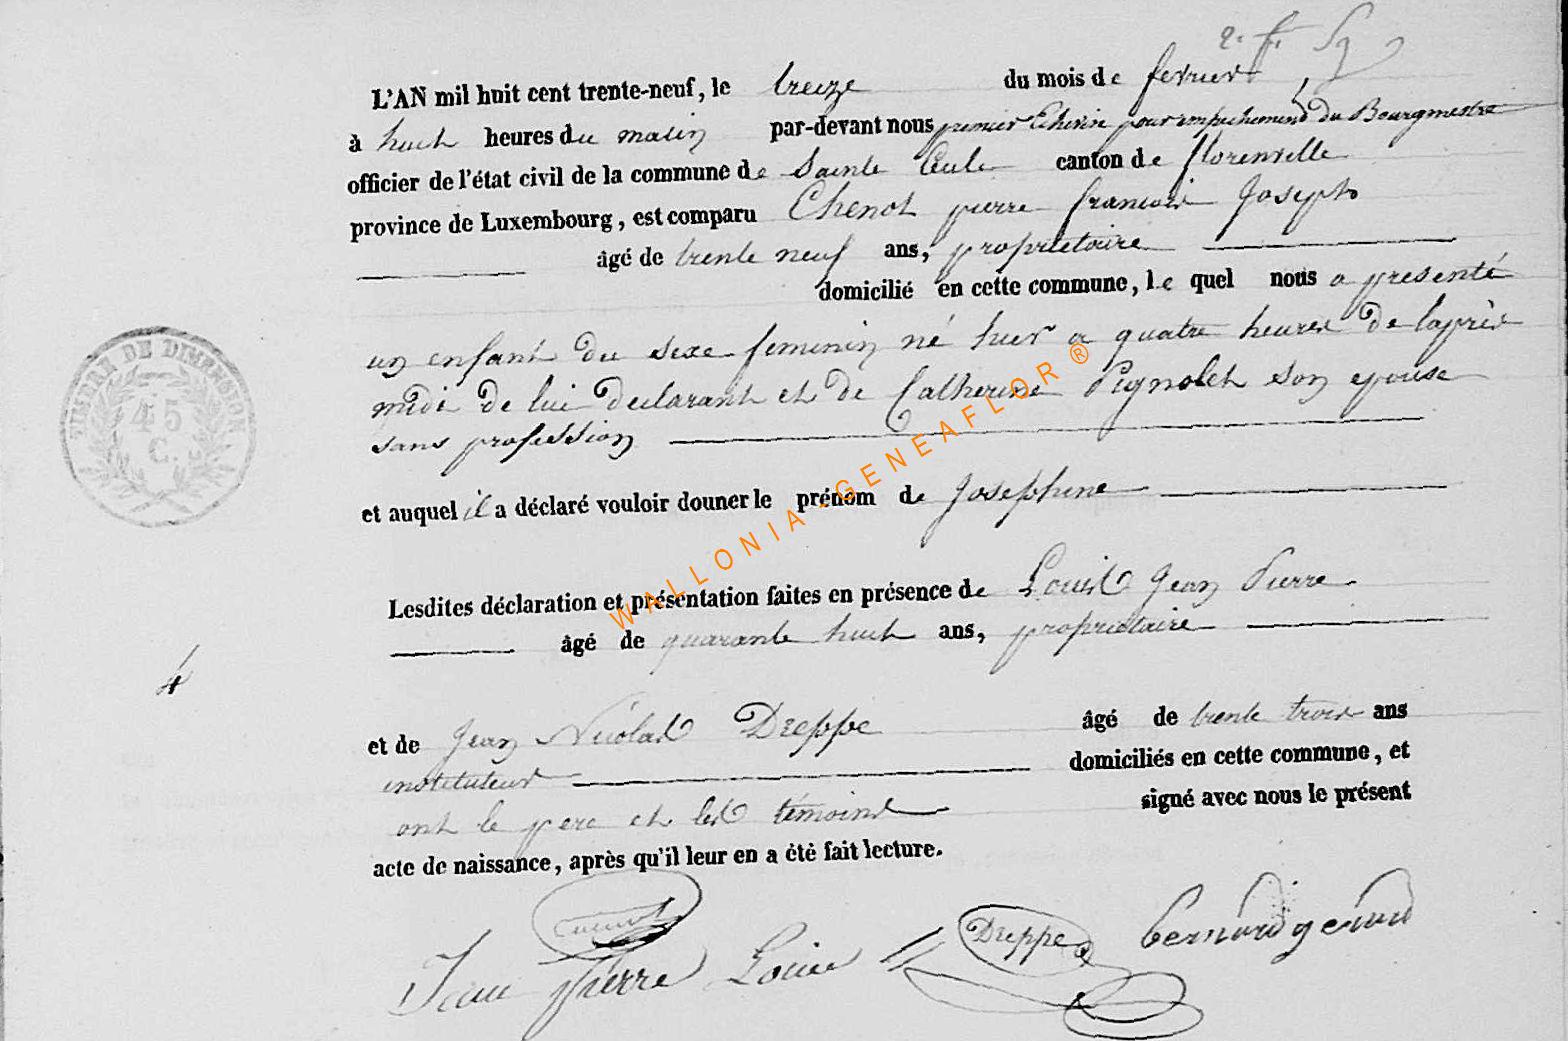 L'AN mil huit cent trente-neuf, le treize du mois de fevrier
à huit heures du matin par-devant nous premier Echevin pour empechement du Bourgmestre
officier de l'état civil de la commune de Sainte Cecile canton de florenville
province de Luxembourg, est comparu Chenot pierre francois Joseph
âgé de trente neuf ans, propriétaire
domicilié en cette commune, le quel nous a presenté
un enfant du sexe feminin né hier a quatre heures de l'après
midi de lui declarant et de Catherine Pignolet son epouse
sans profession
et auquel il a déclaré vouloir donner le prénom de Josephine
Lesdites déclaration et présentation faites en présence de Louis Jean Pierre
âgé de quarante huit ans, propriétaire
4
et de Jean Nicolas Dreppe âgé de trente trois ans
instituteur domiciliés en cette commune, et
ont le pere et les témoins signé avec nous le présent
acte de naissance, après qu'il leur en a été fait lecture.
Jean Pierre Louis Dreppe bernard gerard
TIMBRE DE DIMENSION
45
C.
WALLONIA-GENEAFLOR ®